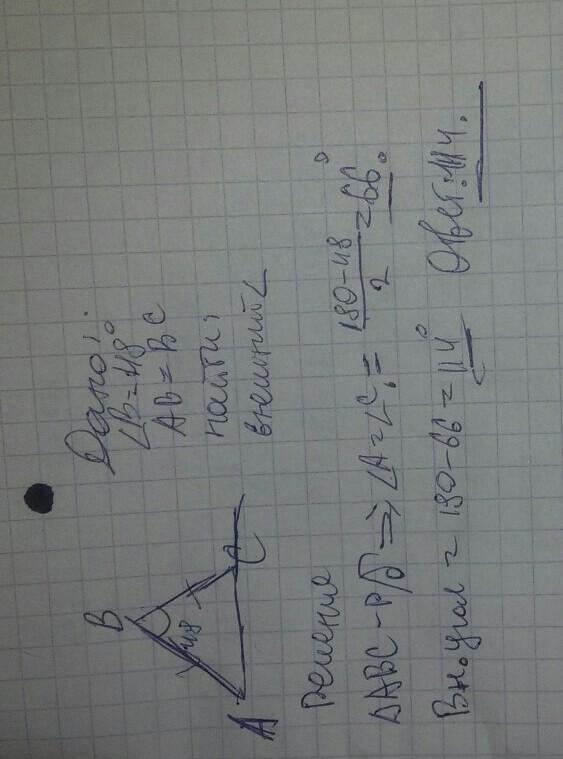 B
48
A
C
Дано:
∠B=48°
AB=BC
найти:
внешний ∠
Решение
ΔABC-р/б ⇒ ∠A=∠C= (180-48)/2 =66°.
Вн.угол = 180-66=114° Ответ:114.